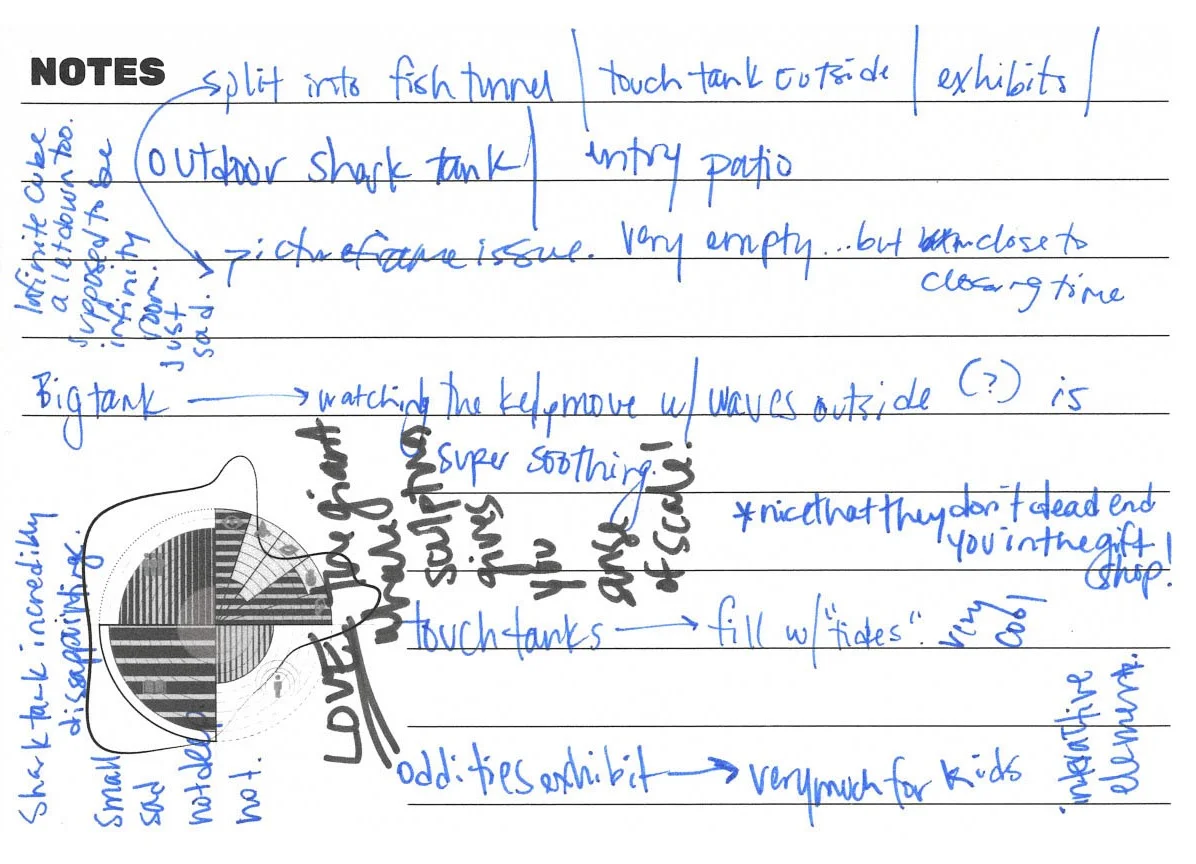 NOTES
split into fish tunnel | touch tank outside | exhibits |
outdoor shark tank | entry patio
picture frame issue. Very empty...but close to
closing time
Infinite Cube
a letdown too.
supposed to be
infinity
room.
Just
sad.
Big tank → watching the kelp move w/ waves outside (?) is
super soothing.
*nice that they don't dead end
you in the gift
shop!
LOVE the giant
whale
sculpture
gives
you
of scale!
touch tanks → fill w/ "tides".
very
cool
interactive
element.
oddities exhibit → very much for kids
Shark tank incredibly
dissapointing.
small
sad
not deep
hot.